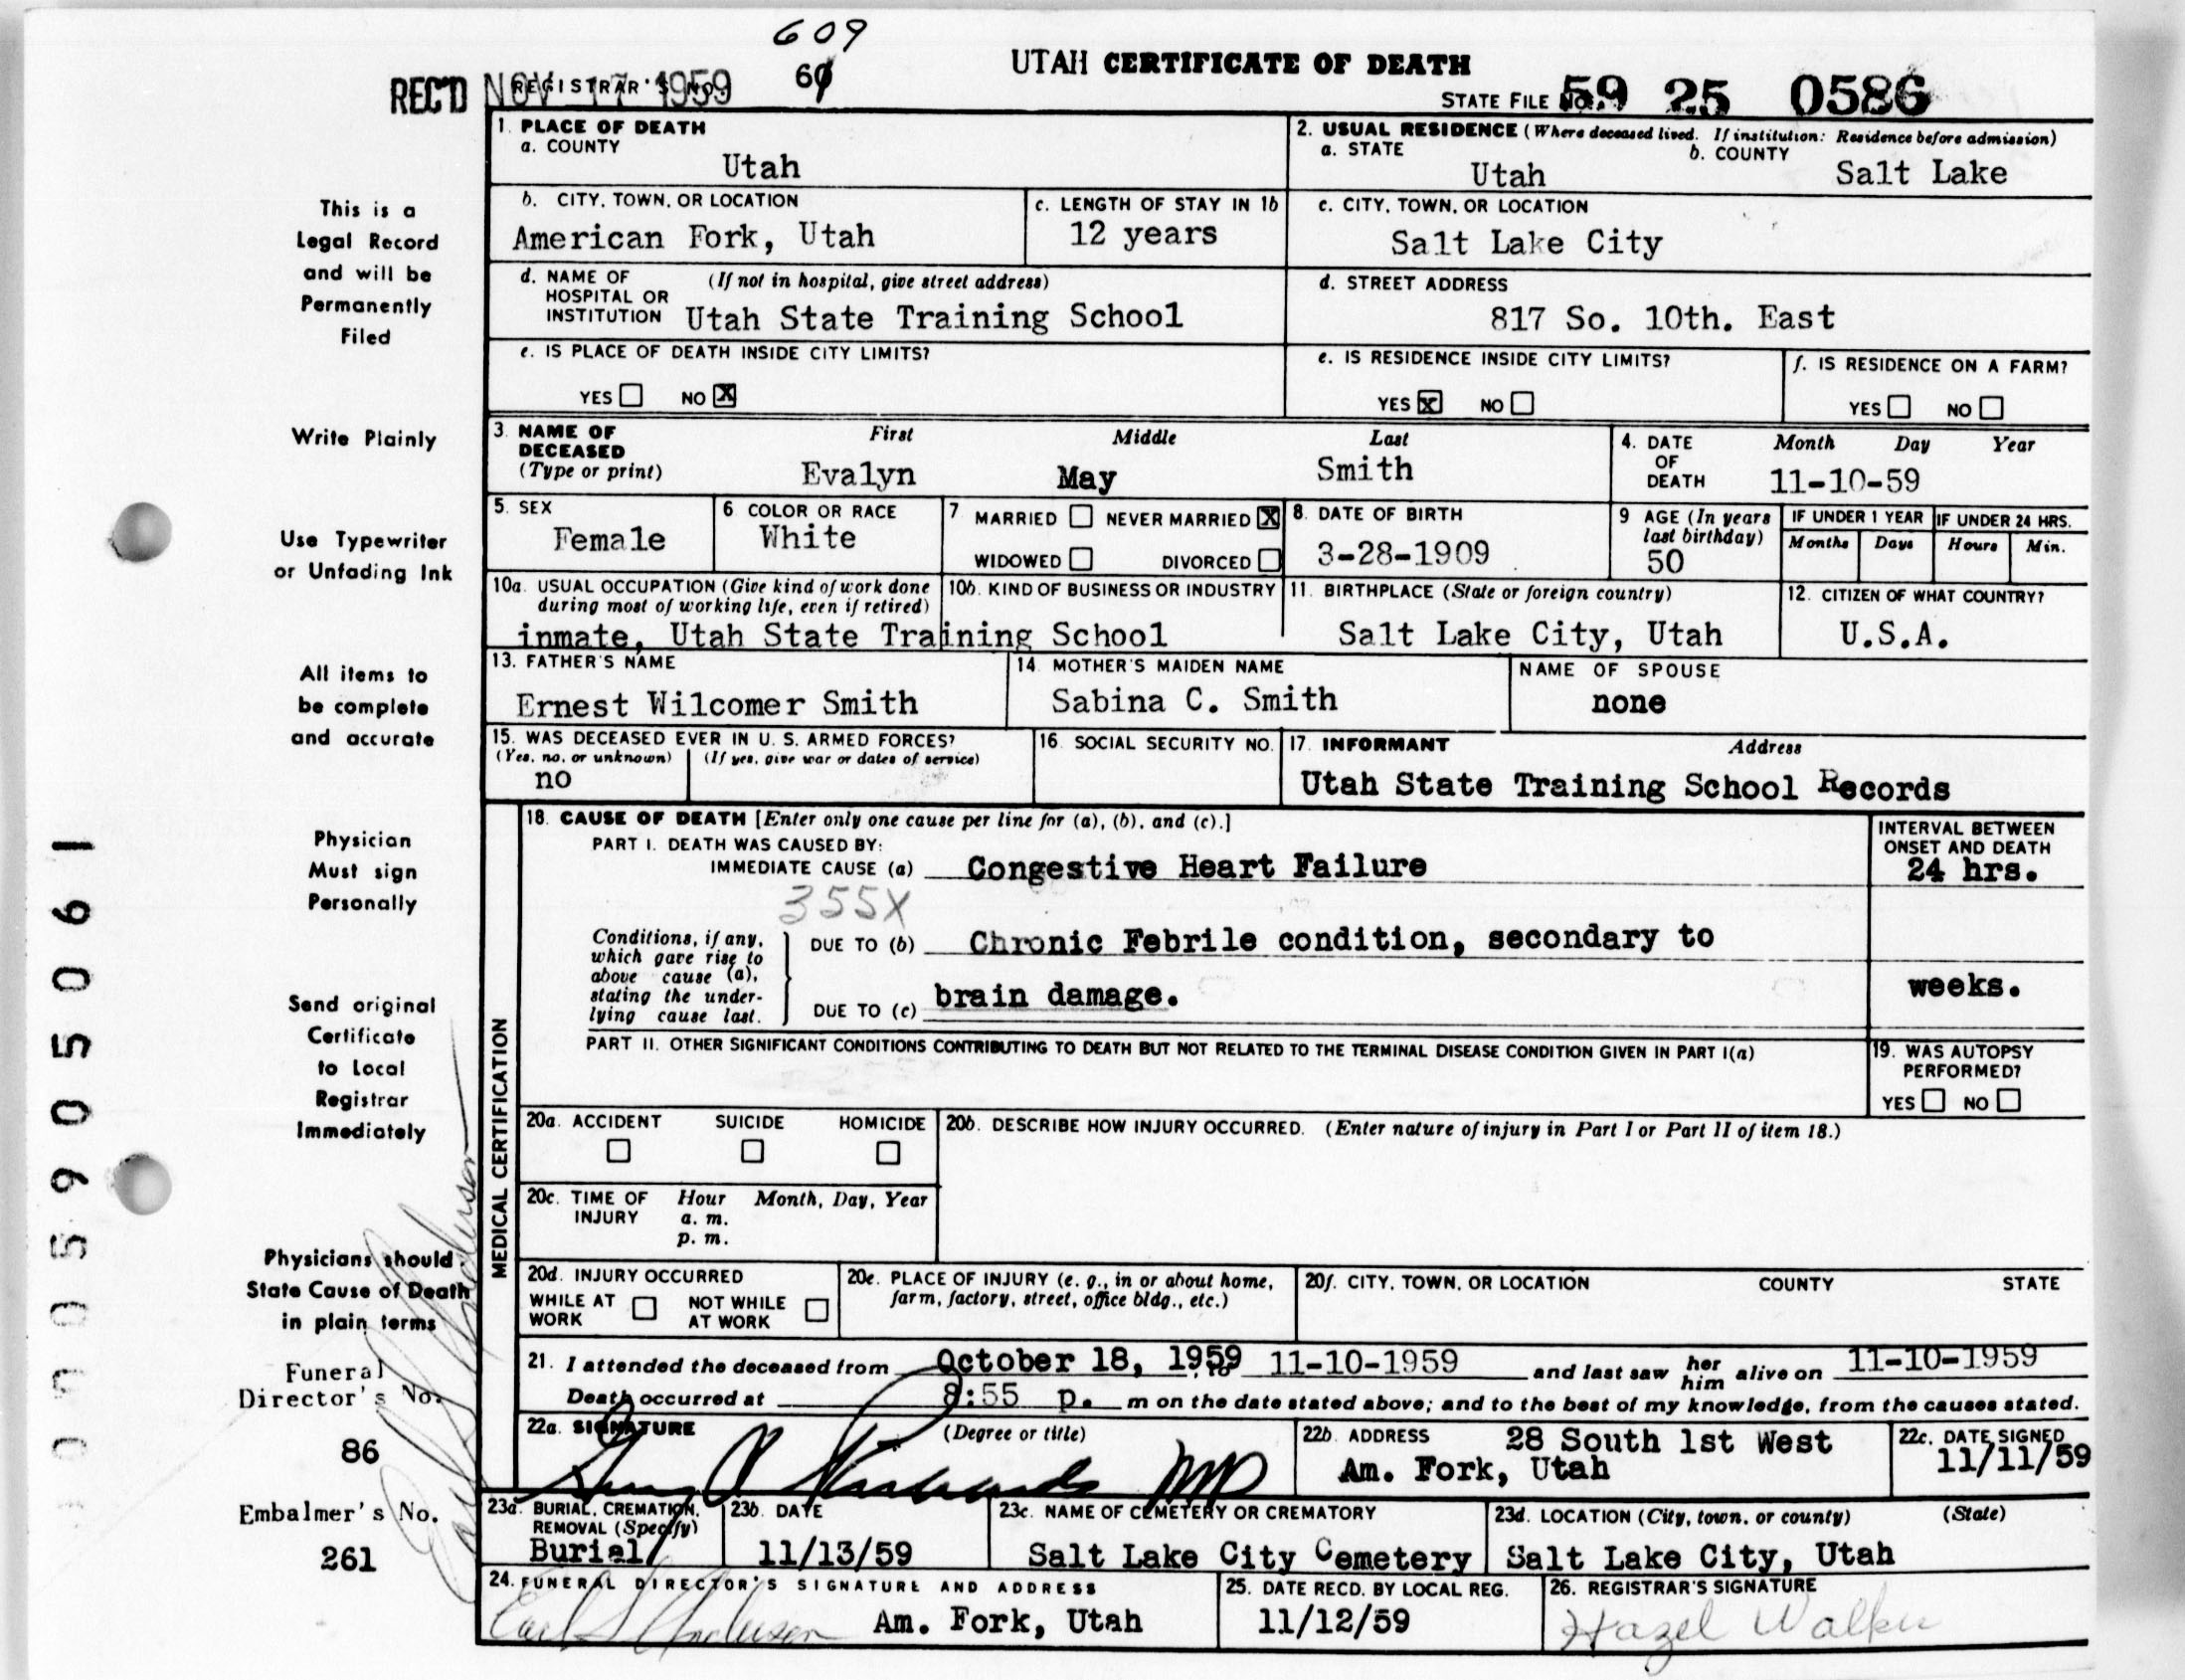 609
UTAH CERTIFICATE OF DEATH
REC'D NOV 17 1959 REGISTRAR'S NO. 60
STATE FILE NO. 59 25 0586
1. PLACE OF DEATH
a. COUNTY
Utah
2. USUAL RESIDENCE (Where deceased lived. If institution: Residence before admission)
a. STATE b. COUNTY
Utah Salt Lake
b. CITY, TOWN, OR LOCATION
American Fork, Utah
c. LENGTH OF STAY IN 1b
12 years
c. CITY, TOWN, OR LOCATION
Salt Lake City
d. NAME OF (If not in hospital, give street address)
HOSPITAL OR
INSTITUTION Utah State Training School
d. STREET ADDRESS
817 So. 10th. East
e. IS PLACE OF DEATH INSIDE CITY LIMITS?
YES NO X
e. IS RESIDENCE INSIDE CITY LIMITS?
YES X NO
f. IS RESIDENCE ON A FARM?
YES NO
3. NAME OF First Middle Last
DECEASED
(Type or print) Evalyn May Smith
4. DATE Month Day Year
OF
DEATH 11-10-59
5. SEX
Female
6 COLOR OR RACE
White
7 MARRIED NEVER MARRIED X
WIDOWED DIVORCED
8. DATE OF BIRTH
3-28-1909
9 AGE (In years
last birthday)
50
IF UNDER 1 YEAR IF UNDER 24 HRS.
Months Days Hours Min.
10a. USUAL OCCUPATION (Give kind of work done
during most of working life, even if retired)
10b. KIND OF BUSINESS OR INDUSTRY
inmate, Utah State Training School
11. BIRTHPLACE (State or foreign country)
Salt Lake City, Utah
12. CITIZEN OF WHAT COUNTRY?
U.S.A.
13. FATHER'S NAME
Ernest Wilcomer Smith
14. MOTHER'S MAIDEN NAME
Sabina C. Smith
NAME OF SPOUSE
none
15. WAS DECEASED EVER IN U. S. ARMED FORCES?
(Yes, no, or unknown) (If yes, give war or dates of service)
no
16. SOCIAL SECURITY NO.
17. INFORMANT Address
Utah State Training School Records
MEDICAL CERTIFICATION
18. CAUSE OF DEATH [Enter only one cause per line for (a), (b), and (c).]
PART I. DEATH WAS CAUSED BY:
IMMEDIATE CAUSE (a) Congestive Heart Failure
INTERVAL BETWEEN
ONSET AND DEATH
24 hrs.
355X
Conditions, if any,
which gave rise to
above cause (a),
stating the under-
lying cause last.
DUE TO (b) Chronic Febrile condition, secondary to
DUE TO (c) brain damage.
weeks.
PART II. OTHER SIGNIFICANT CONDITIONS CONTRIBUTING TO DEATH BUT NOT RELATED TO THE TERMINAL DISEASE CONDITION GIVEN IN PART I(a)
19. WAS AUTOPSY
PERFORMED?
YES NO
20a. ACCIDENT SUICIDE HOMICIDE
20b. DESCRIBE HOW INJURY OCCURRED. (Enter nature of injury in Part I or Part II of item 18.)
20c. TIME OF Hour Month, Day, Year
INJURY a. m.
p. m.
20d. INJURY OCCURRED
WHILE AT NOT WHILE
WORK AT WORK
20e. PLACE OF INJURY (e. g., in or about home,
farm, factory, street, office bldg., etc.)
20f. CITY, TOWN, OR LOCATION COUNTY STATE
21. I attended the deceased from October 18, 1959 to 11-10-1959 and last saw her him alive on 11-10-1959
Death occurred at 8:55 p. m on the date stated above; and to the best of my knowledge, from the causes stated.
22a. SIGNATURE (Degree or title)
Richards MD
22b. ADDRESS 28 South 1st West
Am. Fork, Utah
22c. DATE SIGNED
11/11/59
23a. BURIAL, CREMATION,
REMOVAL (Specify)
Burial
23b. DATE
11/13/59
23c. NAME OF CEMETERY OR CREMATORY
Salt Lake City Cemetery
23d. LOCATION (City, town, or county) (State)
Salt Lake City, Utah
24. FUNERAL DIRECTOR'S SIGNATURE AND ADDRESS
Earl S Anderson Am. Fork, Utah
25. DATE RECD. BY LOCAL REG.
11/12/59
26. REGISTRAR'S SIGNATURE
Hazel Walker
This is a
Legal Record
and will be
Permanently
Filed
Write Plainly
Use Typewriter
or Unfading Ink
All items to
be complete
and accurate
Physician
Must sign
Personally
Send original
Certificate
to Local
Registrar
Immediately
Physicians should
State Cause of Death
in plain terms
Funeral
Director's No.
86
Embalmer's No.
261
Earl S Anderson
0005905061